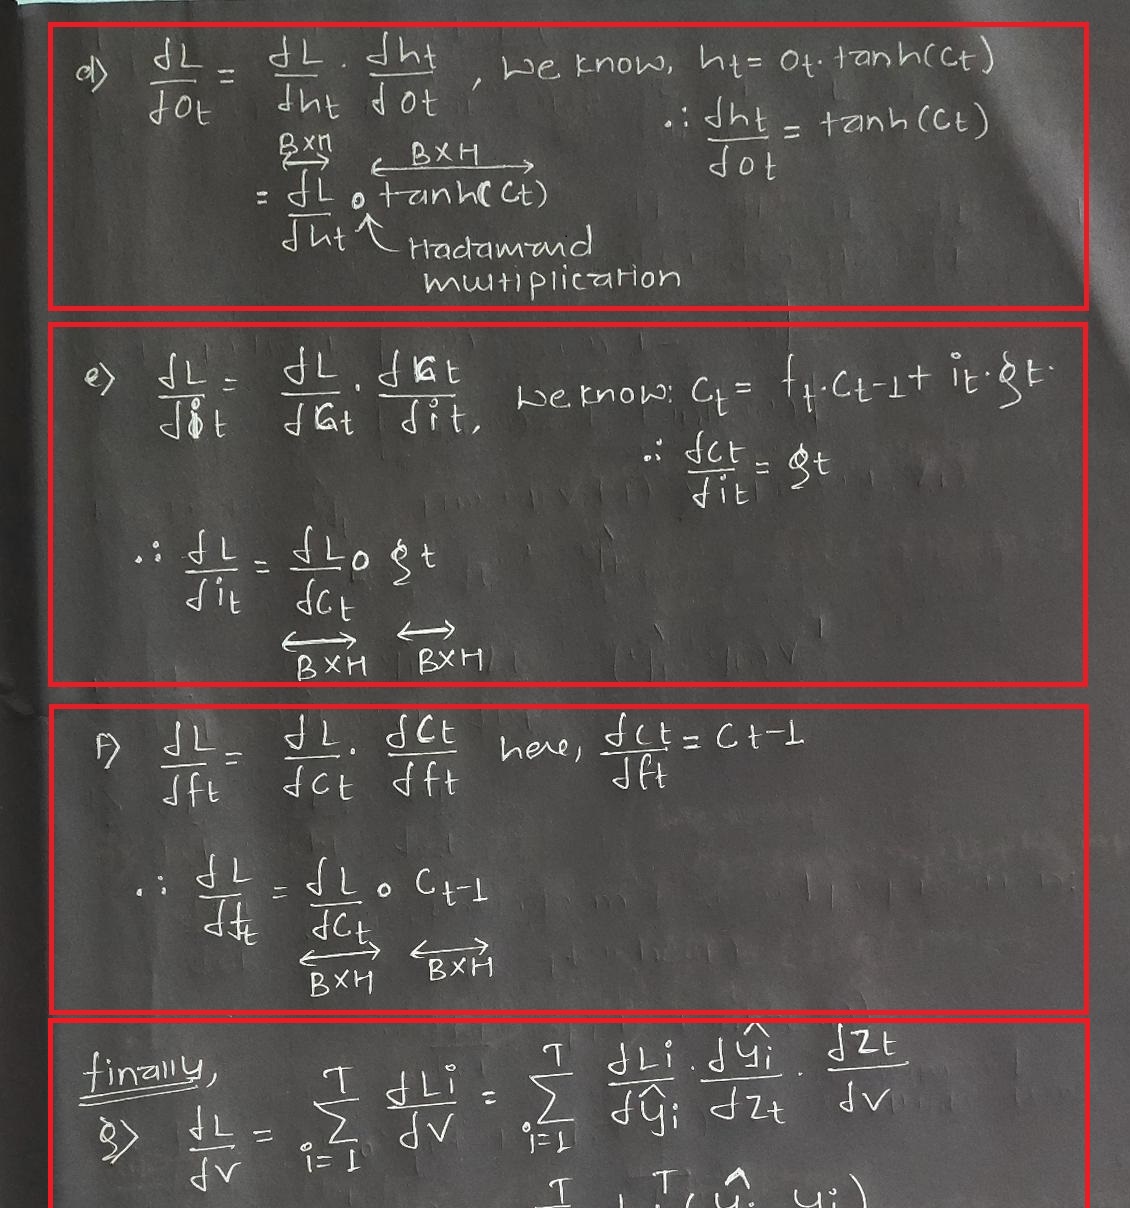 d) dL/dot = dL/dht . dht/dot , we know, ht = ot. tanh(ct)
∴ dht/dot = tanh(ct)
B×H B×H
= dL/dht ∘ tanh(ct)
Hadamard
multiplication
e) dL/dit = dL/dct . dct/dit, we know: Ct = ft.Ct-1 + it.gt.
∴ dct/dit = gt
∴ dL/dit = dL/dCt ∘ gt
B×H B×H
f) dL/dft = dL/dct . dCt/dft here, dct/dft = Ct-1
∴ dL/dft = dL/dCt ∘ Ct-1
B×H B×H
finally,
g) dL/dv = T Σ i=1 dLi/dv = T Σ i=1 dLi/dŷi . dŷi/dzt . dzt/dv